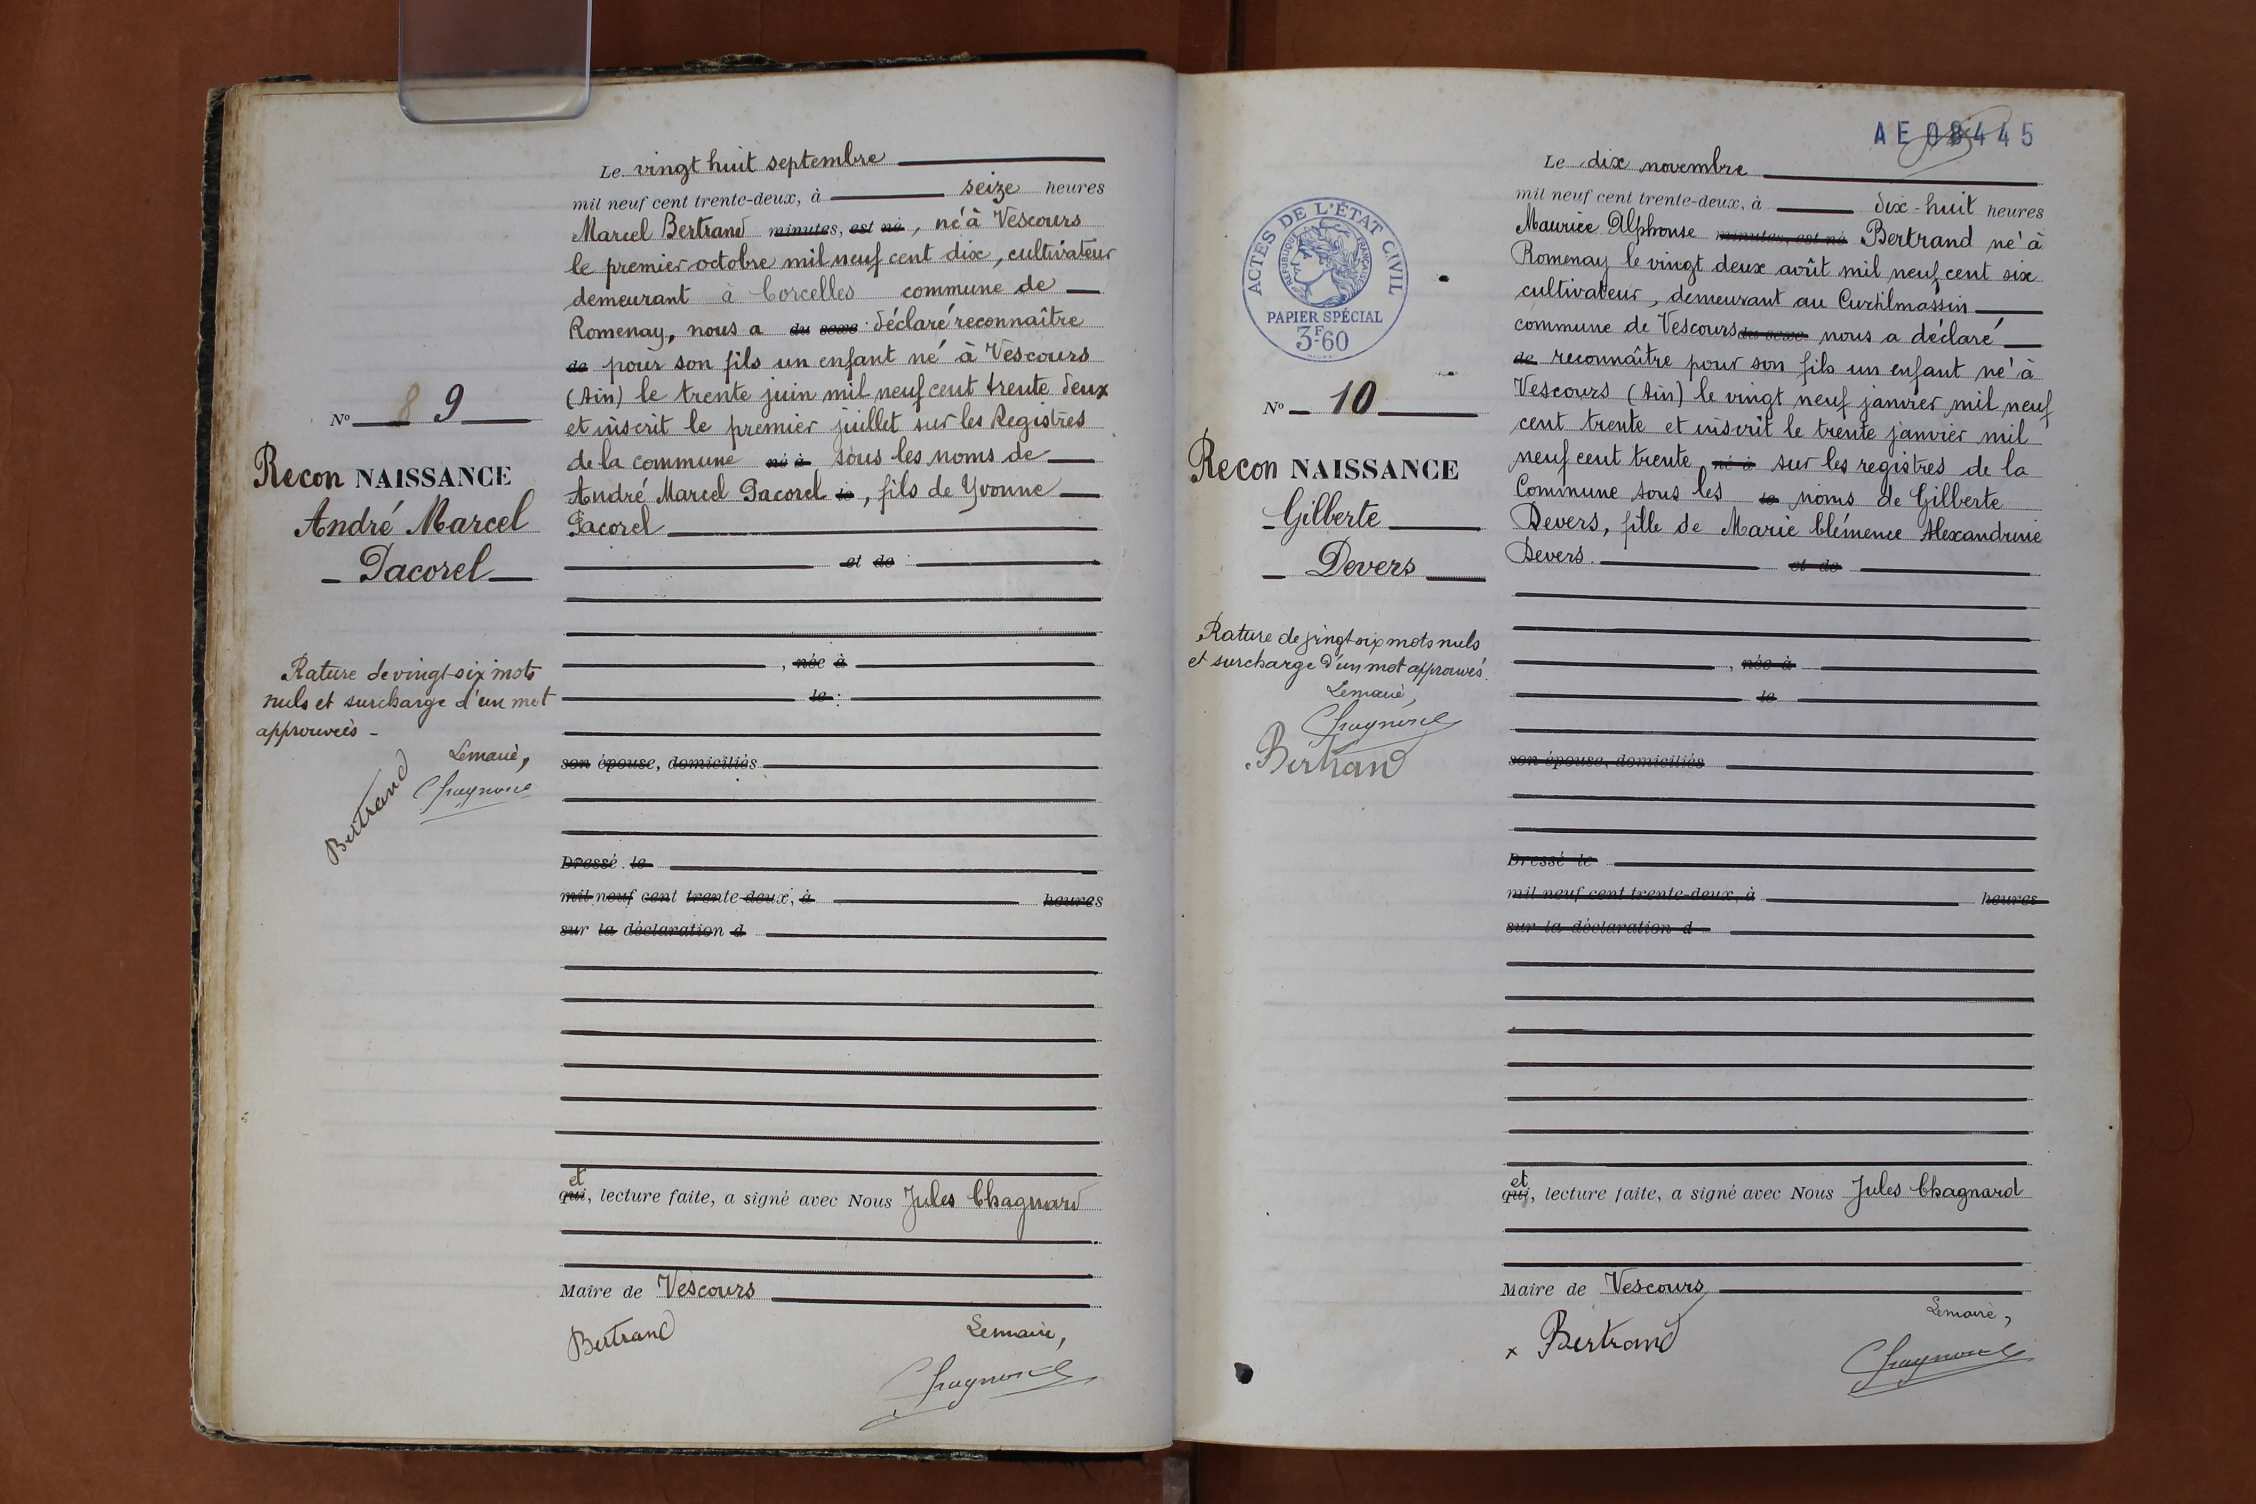 Le vingt huit septembre
mil neuf cent trente-deux, à seize heures
Marcel Bertrand minutes, est né, né à Vescours
le premier octobre mil neuf cent dix, cultivateur
demeurant à Corcelles commune de
Romenay, nous a du sexe déclaré reconnaître
de pour son fils un enfant né à Vescours
(Ain) le trente juin mil neuf cent trente deux
et inscrit le premier juillet sur les Registres
de la commune né à sous les noms de
André Marcel Pacorel le, fils de Yvonne
Pacorel
et de
, née à
le
son épouse, domiciliés
Dressé le
mil neuf cent trente-deux, à heures
sur la déclaration d
et
qui, lecture faite, a signé avec Nous Jules Chagnard
Maire de Vescours
Bertrand
Lemaire,
Chagnard
N° 8 9
Recon NAISSANCE
André Marcel
Pacorel
Rature de vingt-six mots
nuls et surcharge d'un mot
approuvés -
Lemaire,
Chagnard
Bertrand
AE 08445
Le dix novembre
mil neuf cent trente-deux, à dix-huit heures
Maurice Alphonse minutes, est né Bertrand né à
Romenay le vingt deux août mil neuf cent six
cultivateur, demeurant au Curtilmassin
commune de Vescours du sexe nous a déclaré
de reconnaître pour son fils un enfant né à
Vescours (Ain) le vingt neuf janvier mil neuf
cent trente et inscrit le trente janvier mil
neuf cent trente né à sur les registres de la
Commune sous les le noms de Gilberte
Devers, fille de Marie Clémence Alexandrine
Devers.
et de
, née à
le
son épouse, domiciliés
Dressé le
mil neuf cent trente-deux, à heures
sur la déclaration d
et
qui, lecture faite, a signé avec Nous Jules Chagnard
Maire de Vescours
x Bertrand
Lemaire,
Chagnard
ACTES DE L'ÉTAT CIVIL
RÉPUBLIQUE FRANÇAISE
PAPIER SPÉCIAL
3F60
N° 10
Recon NAISSANCE
Gilberte
Devers
Rature de vingt-six mots nuls
et surcharge d'un mot approuvés.
Lemaire,
Chagnard
Bertrand